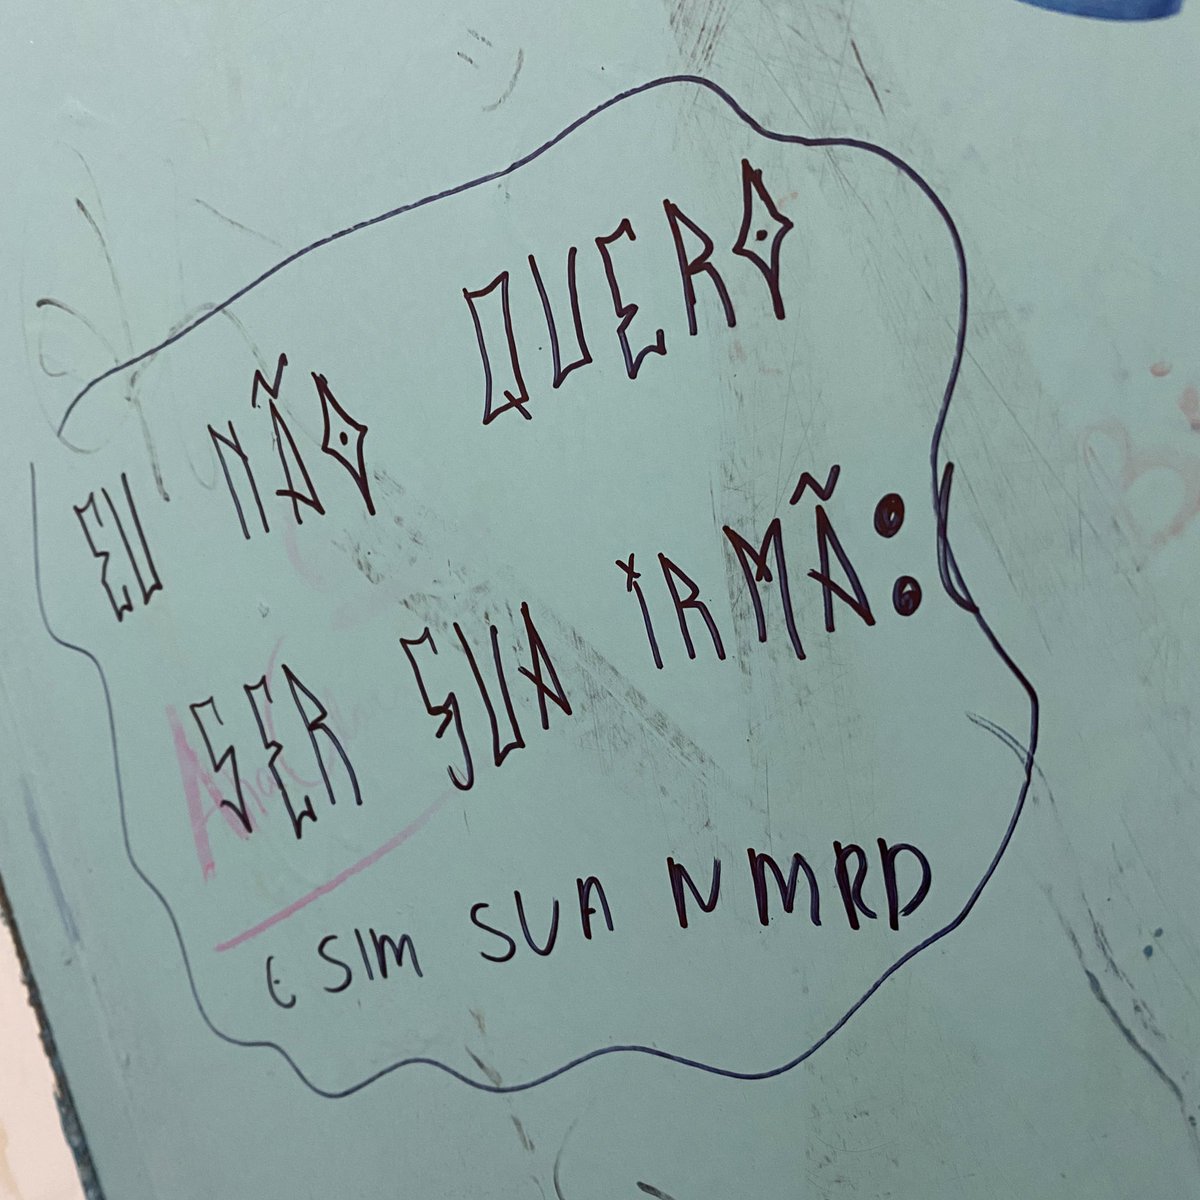 EU NÃO QUERO
SER SUA IRMÃ:
E SIM SUA NMRD